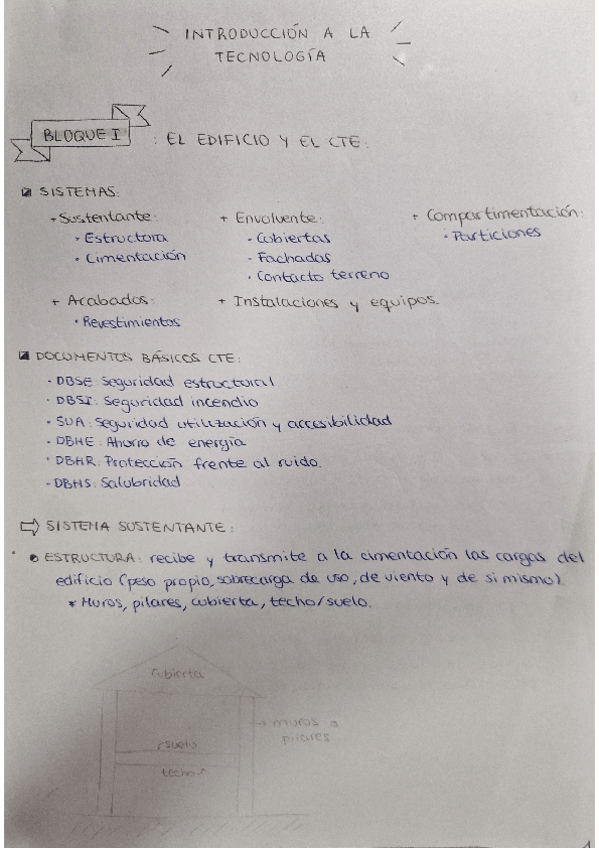 INTRODUCCIÓN A LA
TECNOLOGÍA
BLOQUE I : EL EDIFICIO Y EL CTE:
SISTEMAS:
+ Sustentante: + Envolvente: + Compartimentación:
· Estructura · Cubiertas · Particiones
· Cimentación · Fachadas
· Contacto terreno
+ Acabados: + Instalaciones y equipos.
· Revestimientos
DOCUMENTOS BÁSICOS CTE:
· DBSE: Seguridad estructural
· DBSI: Seguridad incendio
· SUA: Seguridad utilización y accesibilidad
· DBHE: Ahorro de energía
· DBHR: Protección frente al ruido.
· DBHS: Salubridad
⇨ SISTEMA SUSTENTANTE:
• ESTRUCTURA: recibe y transmite a la cimentación las cargas del
edificio (peso propio, sobrecarga de uso, de viento y de si mismo)
* Muros, pilares, cubierta, techo/suelo.
cubierta
→ muros o
pilares
suelo
techo